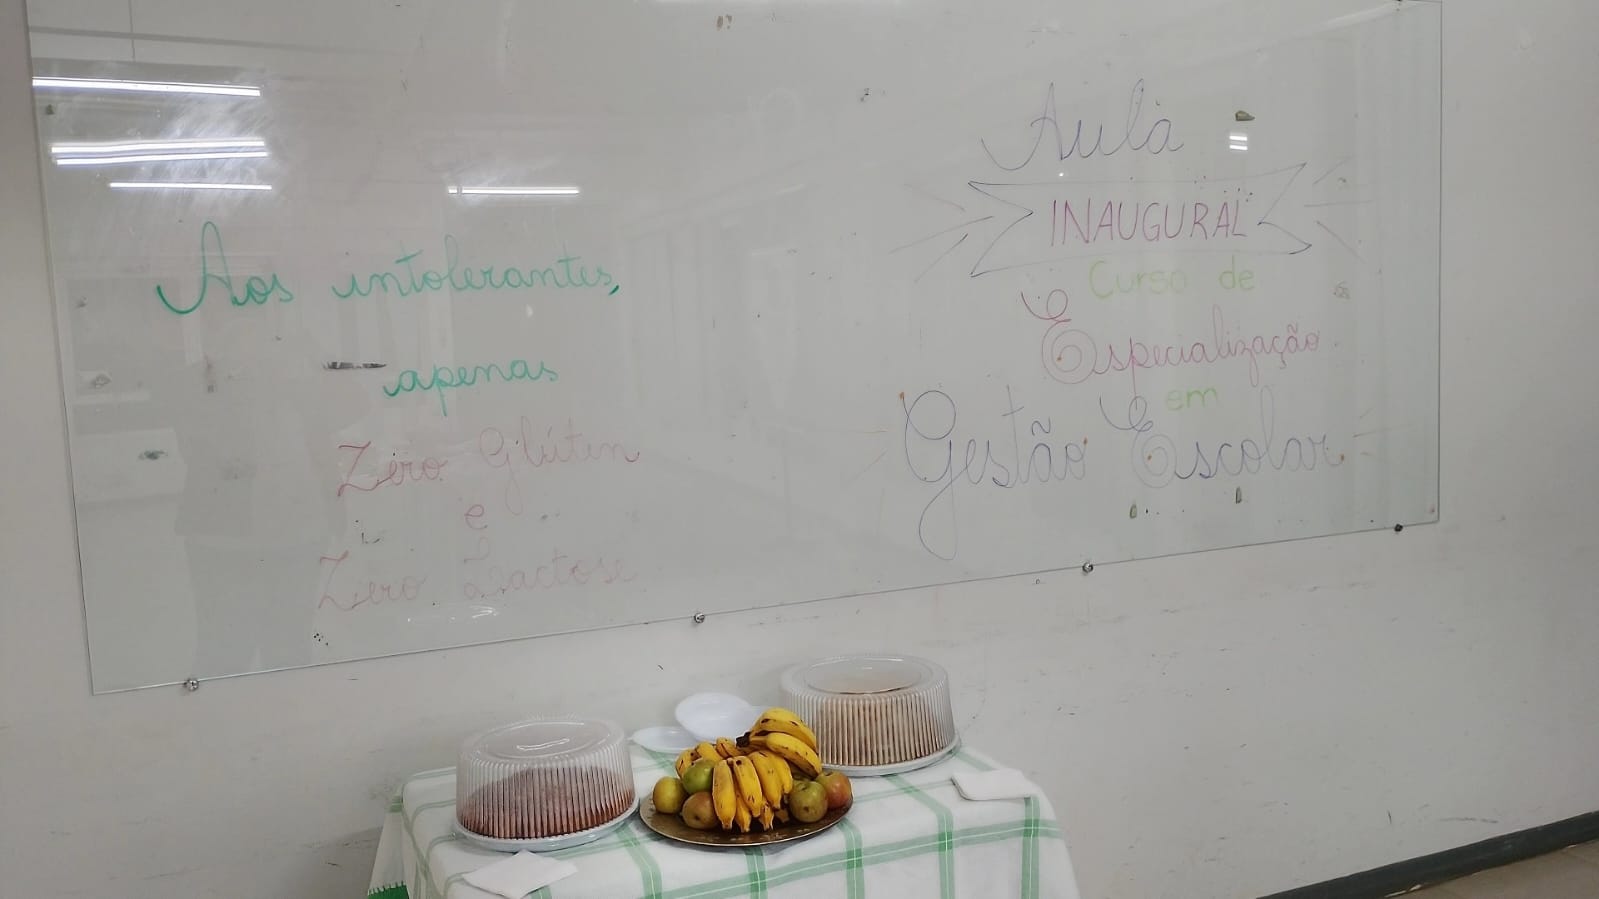 Aos intolerantes,
apenas
Zero Glúten
e
Zero Lactose
Aula
INAUGURAL
Curso de
Especialização
em
Gestão Escolar